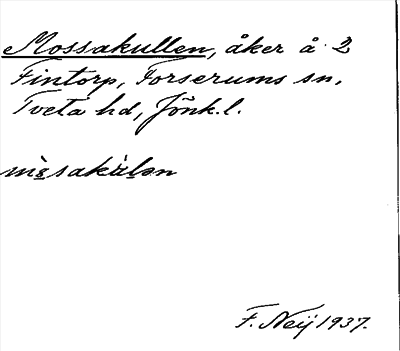 Mossakullen, åker å 2
Fintorp, Forserums sn,
Tveta hd, Jönk.l.
F. Neij 1937.